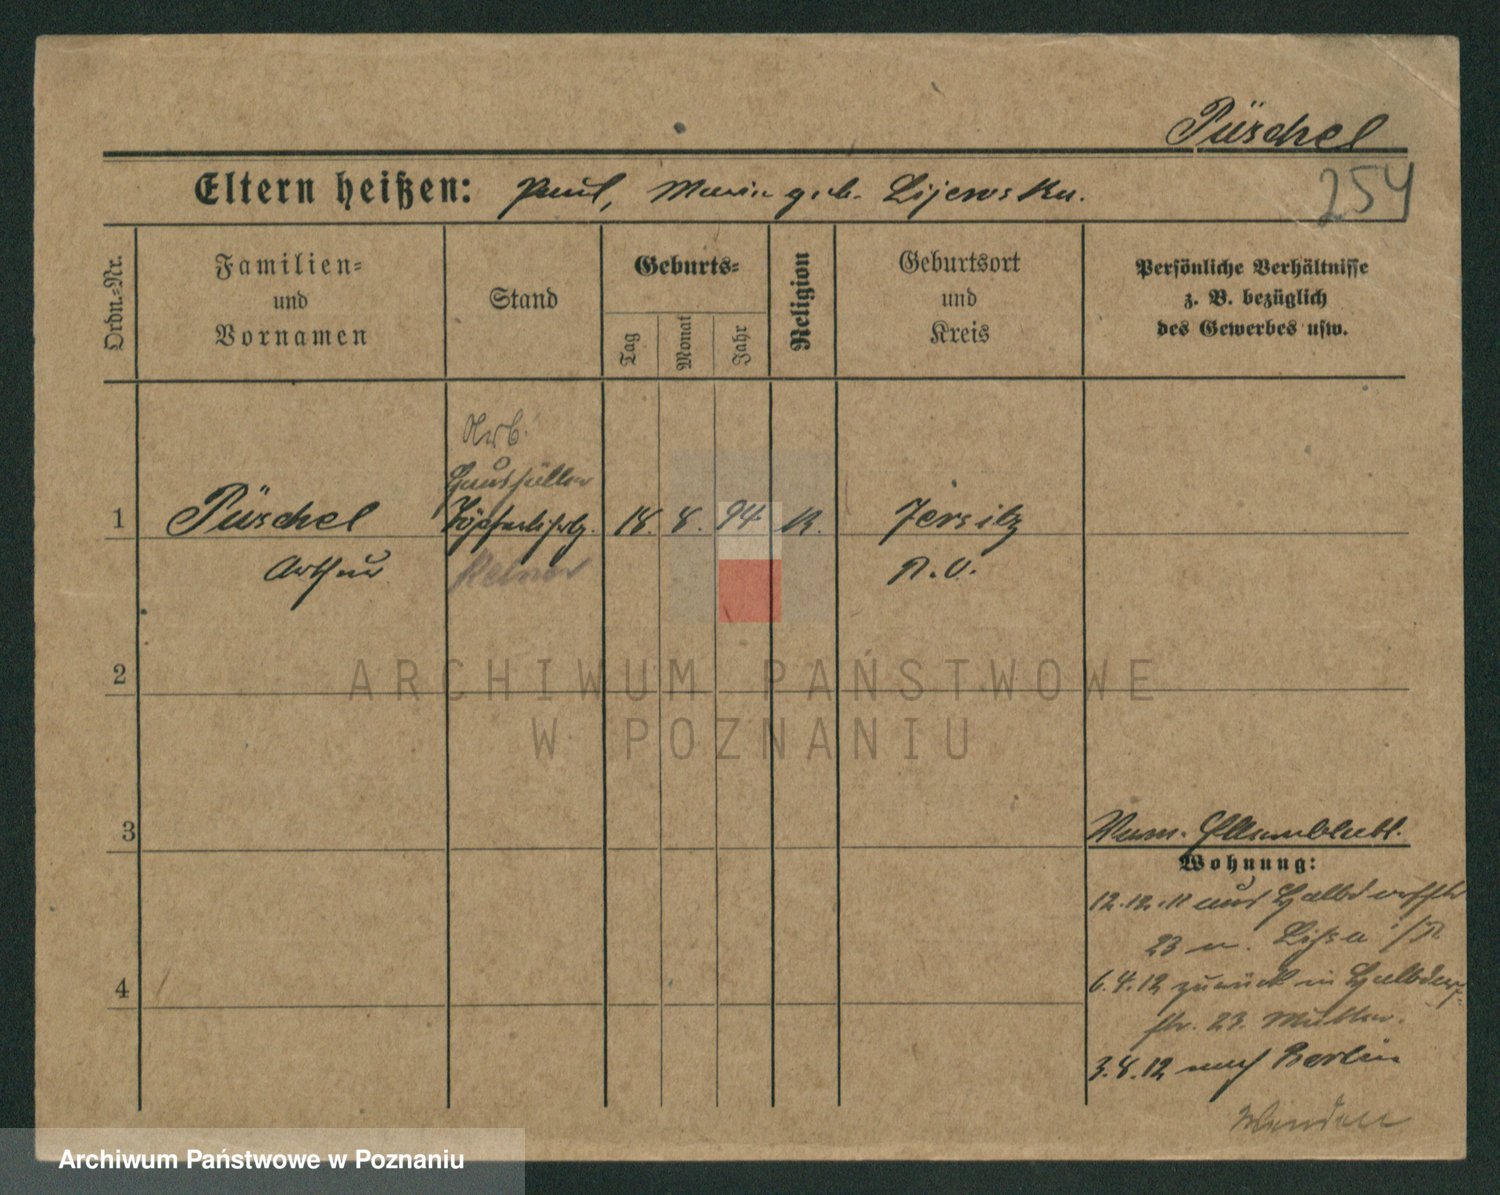 Püschel
254
Eltern heißen: Paul, Maria geb. Lijewska.
Ordn.=Nr.
Familien=
und
Vornamen
Stand
Geburts=
Tag
Monat
Jahr
Religion
Geburtsort
und
Kreis
Persönliche Verhältnisse
z. B. bezüglich
des Gewerbes usw.
Arb.
1 Püschel 18. 8. 94 K. Jersitz
Arthur Kellner P. O.
2
ARCHIWUM PAŃSTWOWE
W POZNANIU
3
Wohnung:
12.12.11 aus Halbdorfstr
23 n. Lissa i/P
4
6.4.12 zurück in Halbdorf-
str. 23. Mutter.
3.8.12 nach Berlin
Wenden
Archiwum Państwowe w Poznaniu